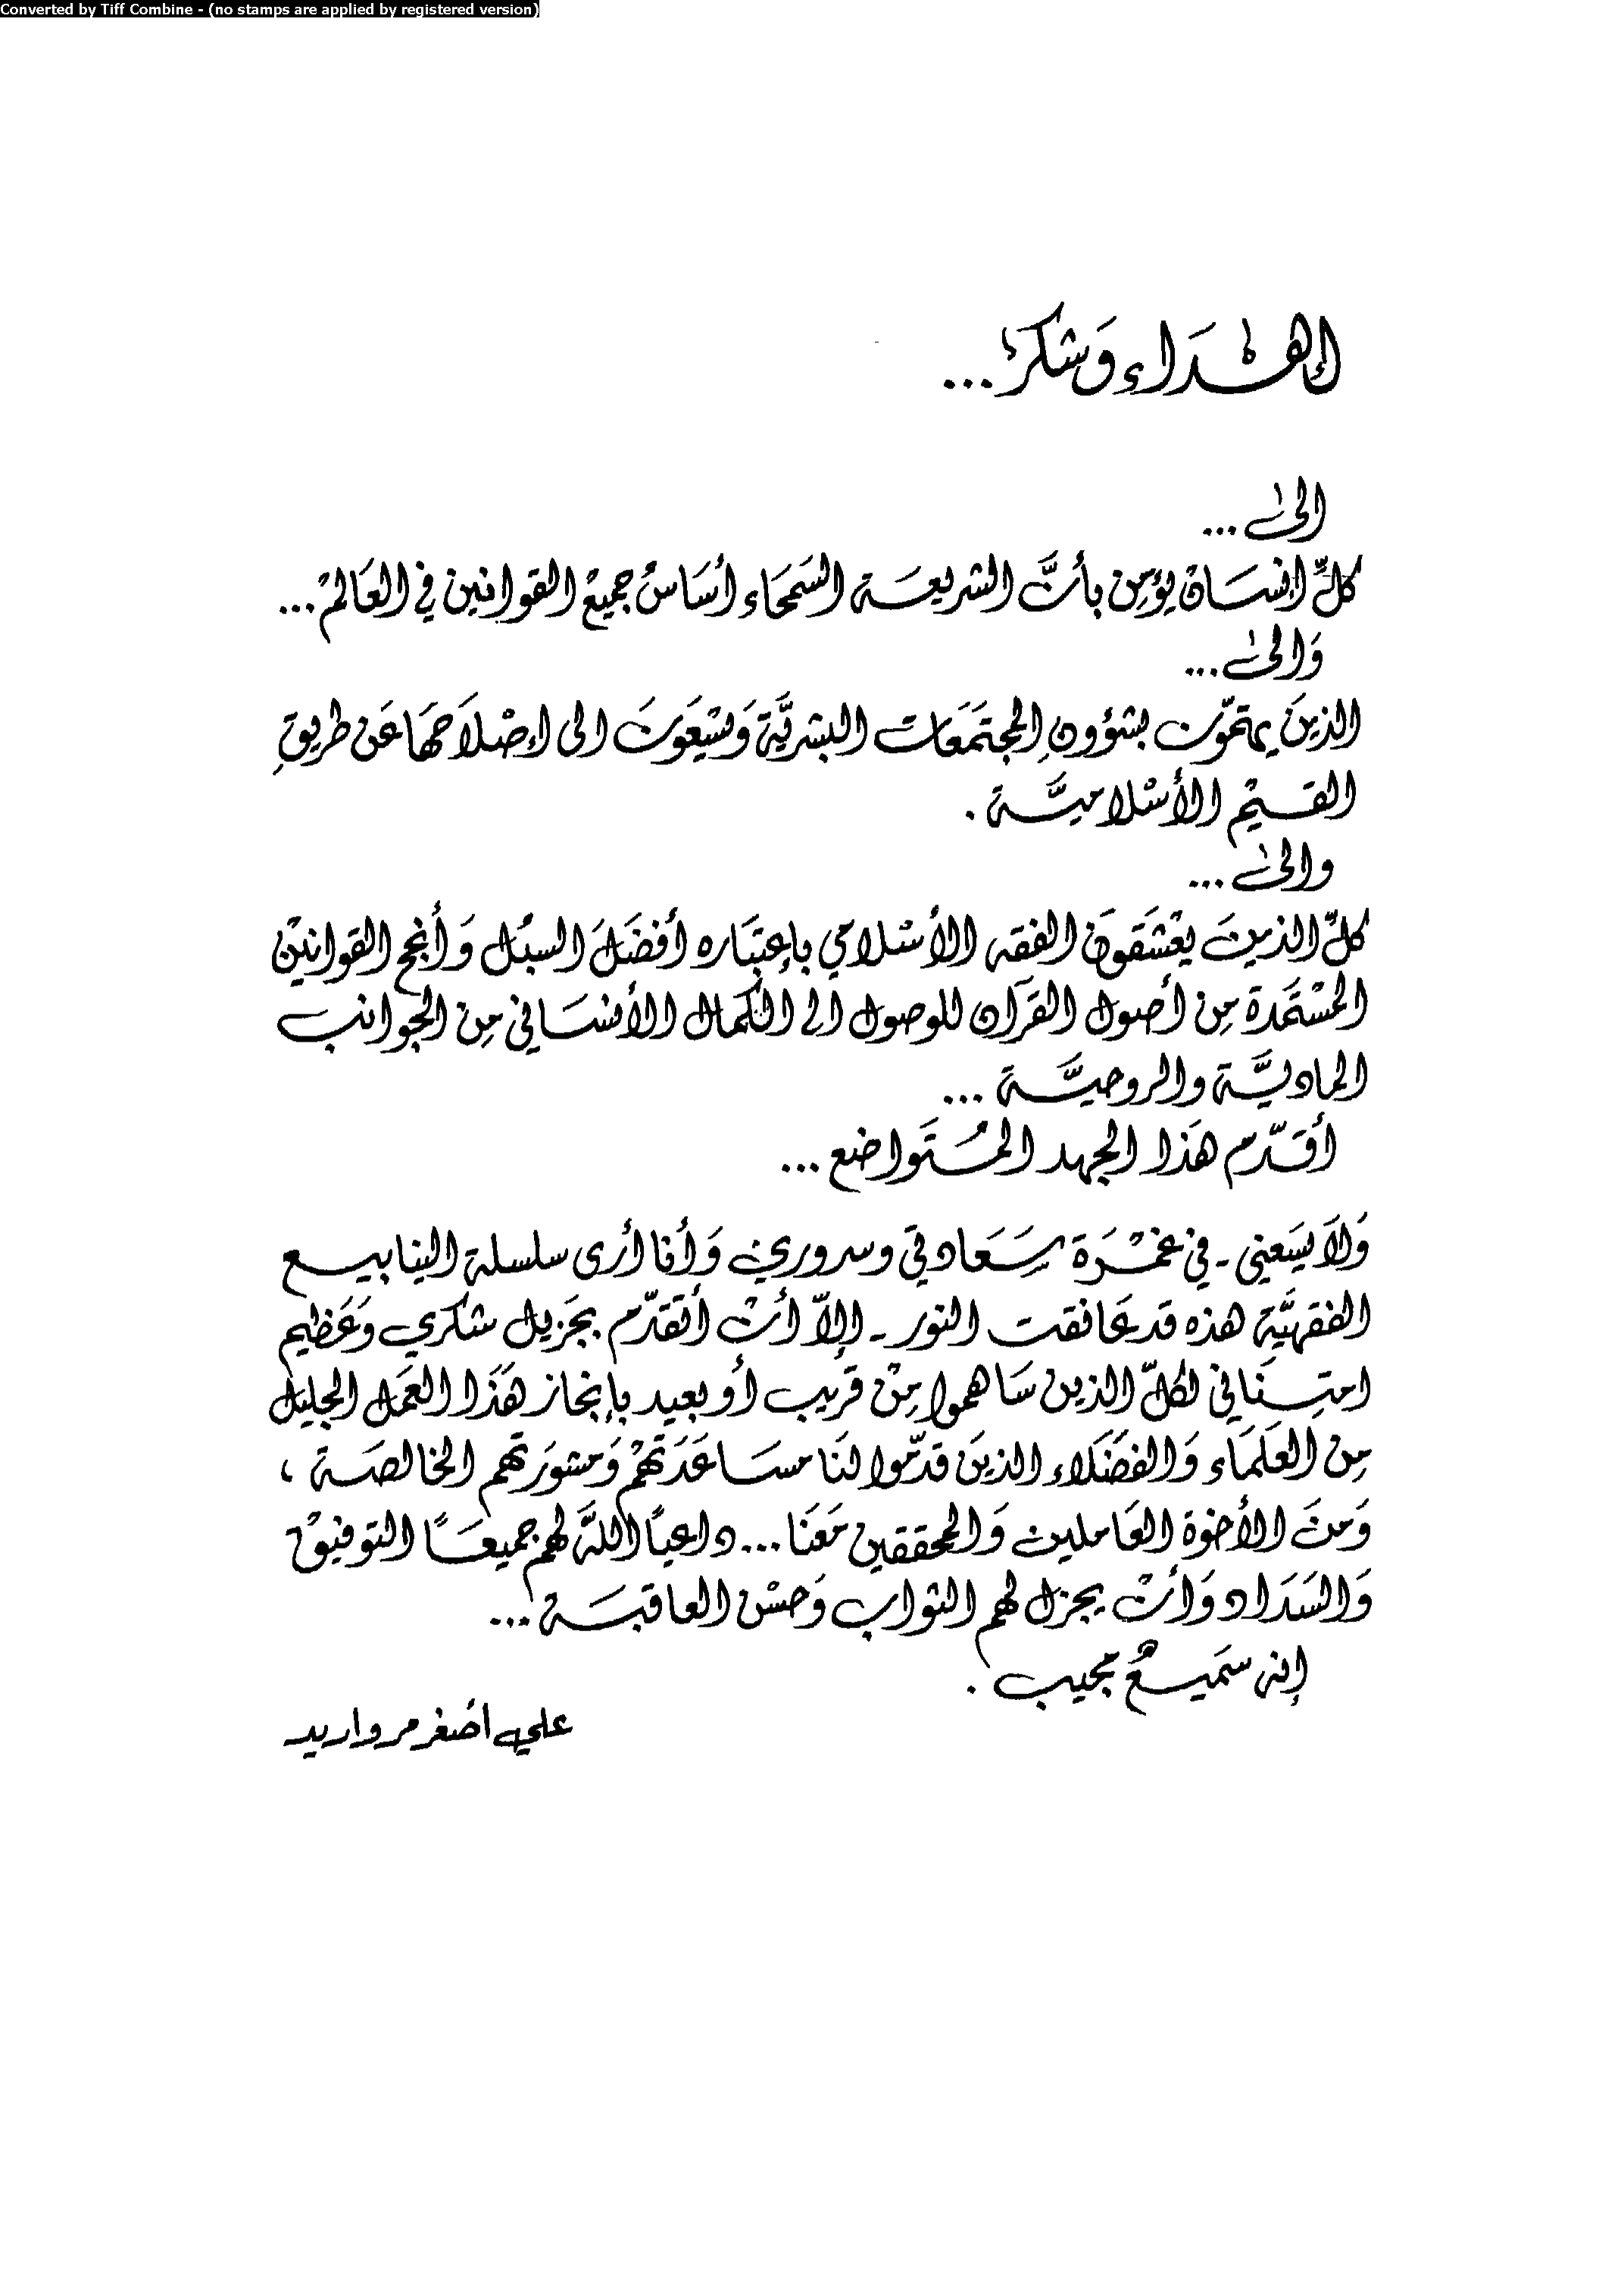 Converted by Tiff Combine - (no stamps are applied by registered version)
إهداء وشكر...
الى ...
كلِّ إنسان يؤمن بأنَّ الشريعة السمحاء أساس جميع القوانين في العالم ...
وَالى ...
الذينَ يهتمّون بشؤونِ المجتمَعات البشريَّة وَيسْعَونَ الى إصْلاَحهَا عَن طريقِ
القيم الأسْلاميَّة .
والى ...
كلِّ الذينَ يعْشَقونَ الفقه الأسْلامي بإعتبَاره أفضَلَ السبُل وَأنجح القوانيْن
المسْتمَدة مِن أصول القرآن للوصول الى الكمال الأنسَاني مِن الجوانب
الماديَّة والروحيَّة ...
أقدّم هَذا الجهد المُتَواضع ...
وَلاَ يسَعني - في غمْرَة سَعَادتي وسروري وَأنا أرى سلسلة الينابيع
الفقهيَّة هذه قد عَانقت النور - إلاّ أنْ أتقدّم بجَزيل شكري وَعَظيم
امتِنَاني لكلّ الذين سَاهموا مِنْ قريب أو بعيد بإنجاز هَذا العَمَل الجليل
مِن العلَمَاء وَالفضَلاء الذينَ قدّموا لنَا مسَاعَدَتهُمْ وَمشورَتهم الخالصَة ،
وَمنَ الأخوة العَاملين وَالمحققين مَعَنا ... داعياً اللهَ لهم جميعَاً التوفيقْ
وَالسَدَاد وَأنْ يجزل لهم الثواب وَحسْن العاقبَة ...
إنه سَميعٌ مجيب .
علي اصغر مرواريد